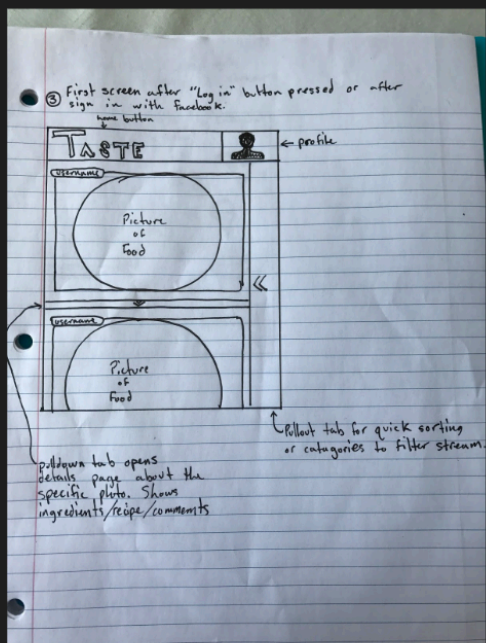 ③ First screen after "Log in" button pressed or after
sign in with facebook.
home button
TASTE
← profile
username
Picture
of
Food
«
username
Picture
of
Food
Pullout tab for quick sorting
or catagories to filter stream.
pulldown tab opens
details page about the
specific photo. Shows
ingredients/recipe/comments